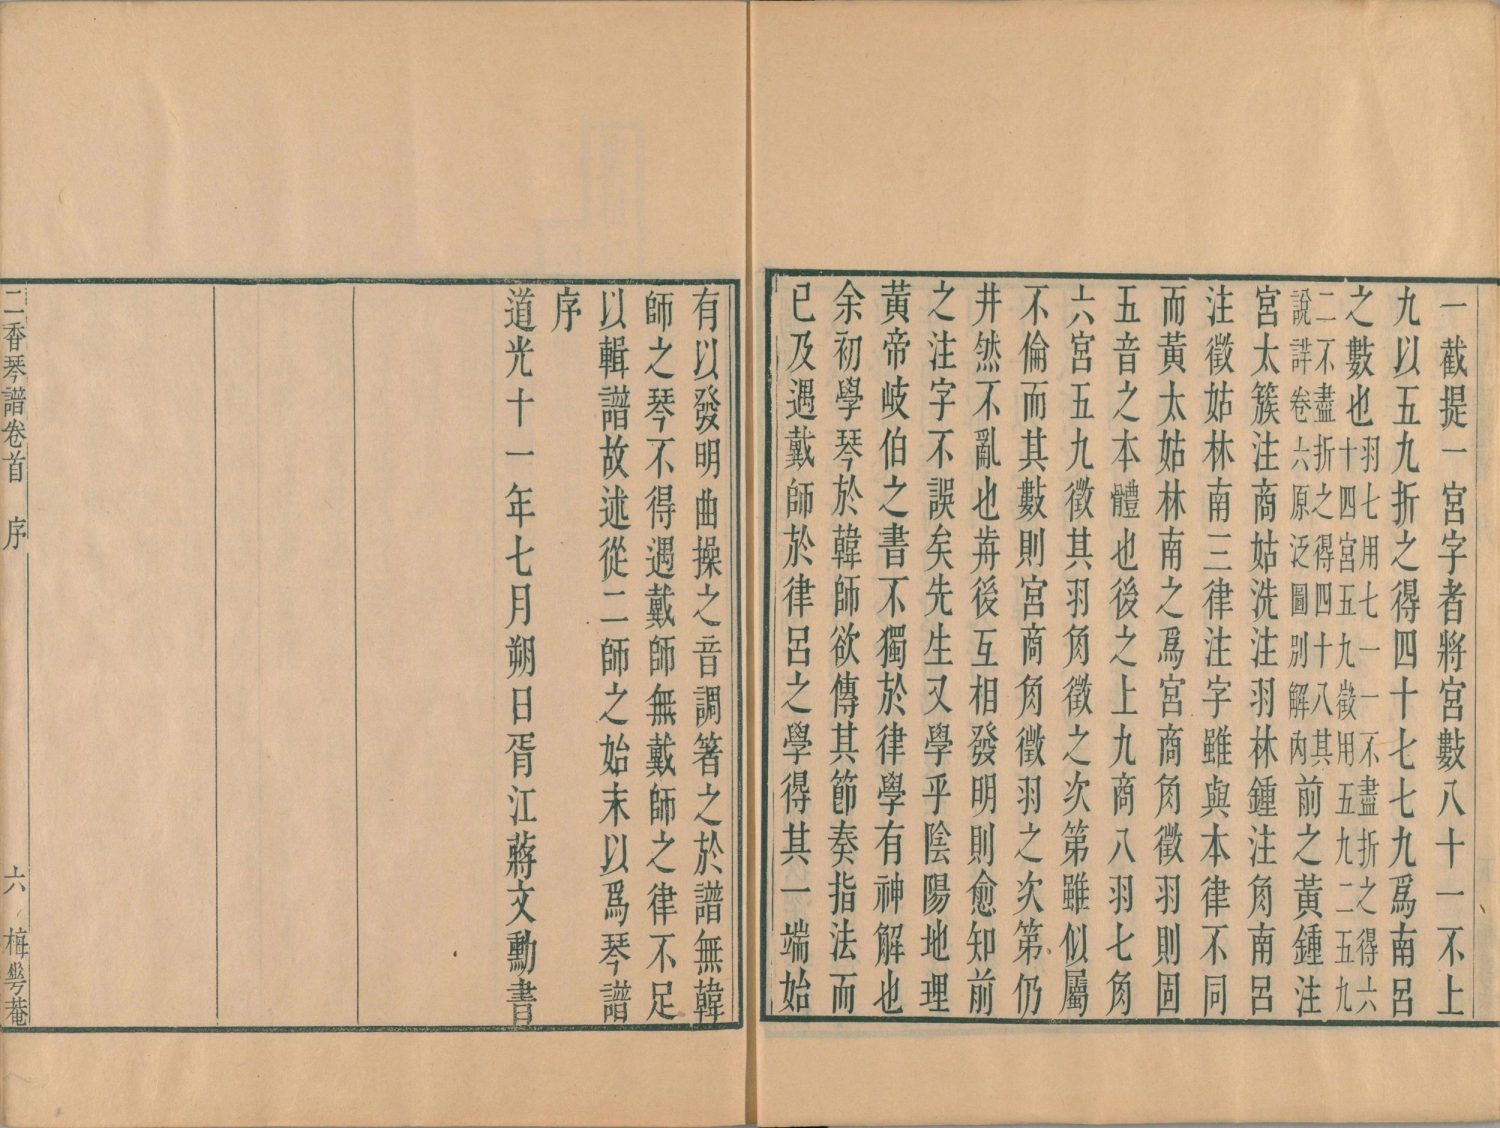 一截提一宮字者將宮數八十一不上
九以五九折之得四十七七九爲南呂
之數也羽七用七一一不盡折之得六
十四宮五九徵用五九二五九
二不盡折之得四十八其
說詳卷六原泛圖別解內前之黃鍾注
宮太簇注商姑洗注羽林鍾注角南呂
注徵姑林南三律注字雖與本律不同
而黃太姑林南之爲宮商角徵羽則固
五音之本體也後之上九商八羽七角
六宮五九徵其羽角徵之次第雖似屬
不倫而其數則宮商角徵羽之次第仍
井然不亂也歬後互相發明則愈知前
之注字不誤矣先生又學乎陰陽地理
黃帝岐伯之書不獨於律學有神解也
余初學琴於韓師欲傳其節奏指法而
已及遇戴師於律呂之學得其一端始
有以發明曲操之音調箸之於譜無韓
師之琴不得遇戴師無戴師之律不足
以輯譜故述從二師之始末以爲琴譜
序
道光十一年七月朔日胥江蔣文勳書
二香琴譜卷首 序 六 梅芛菴